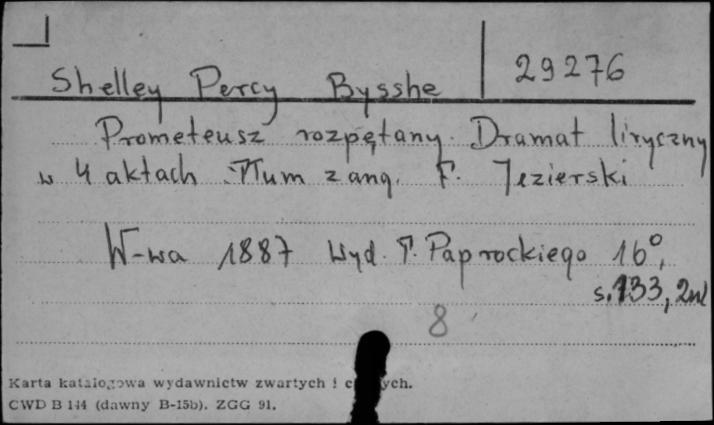 Shelley Percy Bysshe 29276
Prometeusz rozpętany. Dramat liryczny
w 4 aktach. Tłum z ang. F. Jezierski
W-wa 1887 Wyd. T. Paprockiego 16°,
s. 133, 2nl
8
Karta katalogowa wydawnictw zwartych i
CWD B 144 (dawny B-15b). ZGG 91.